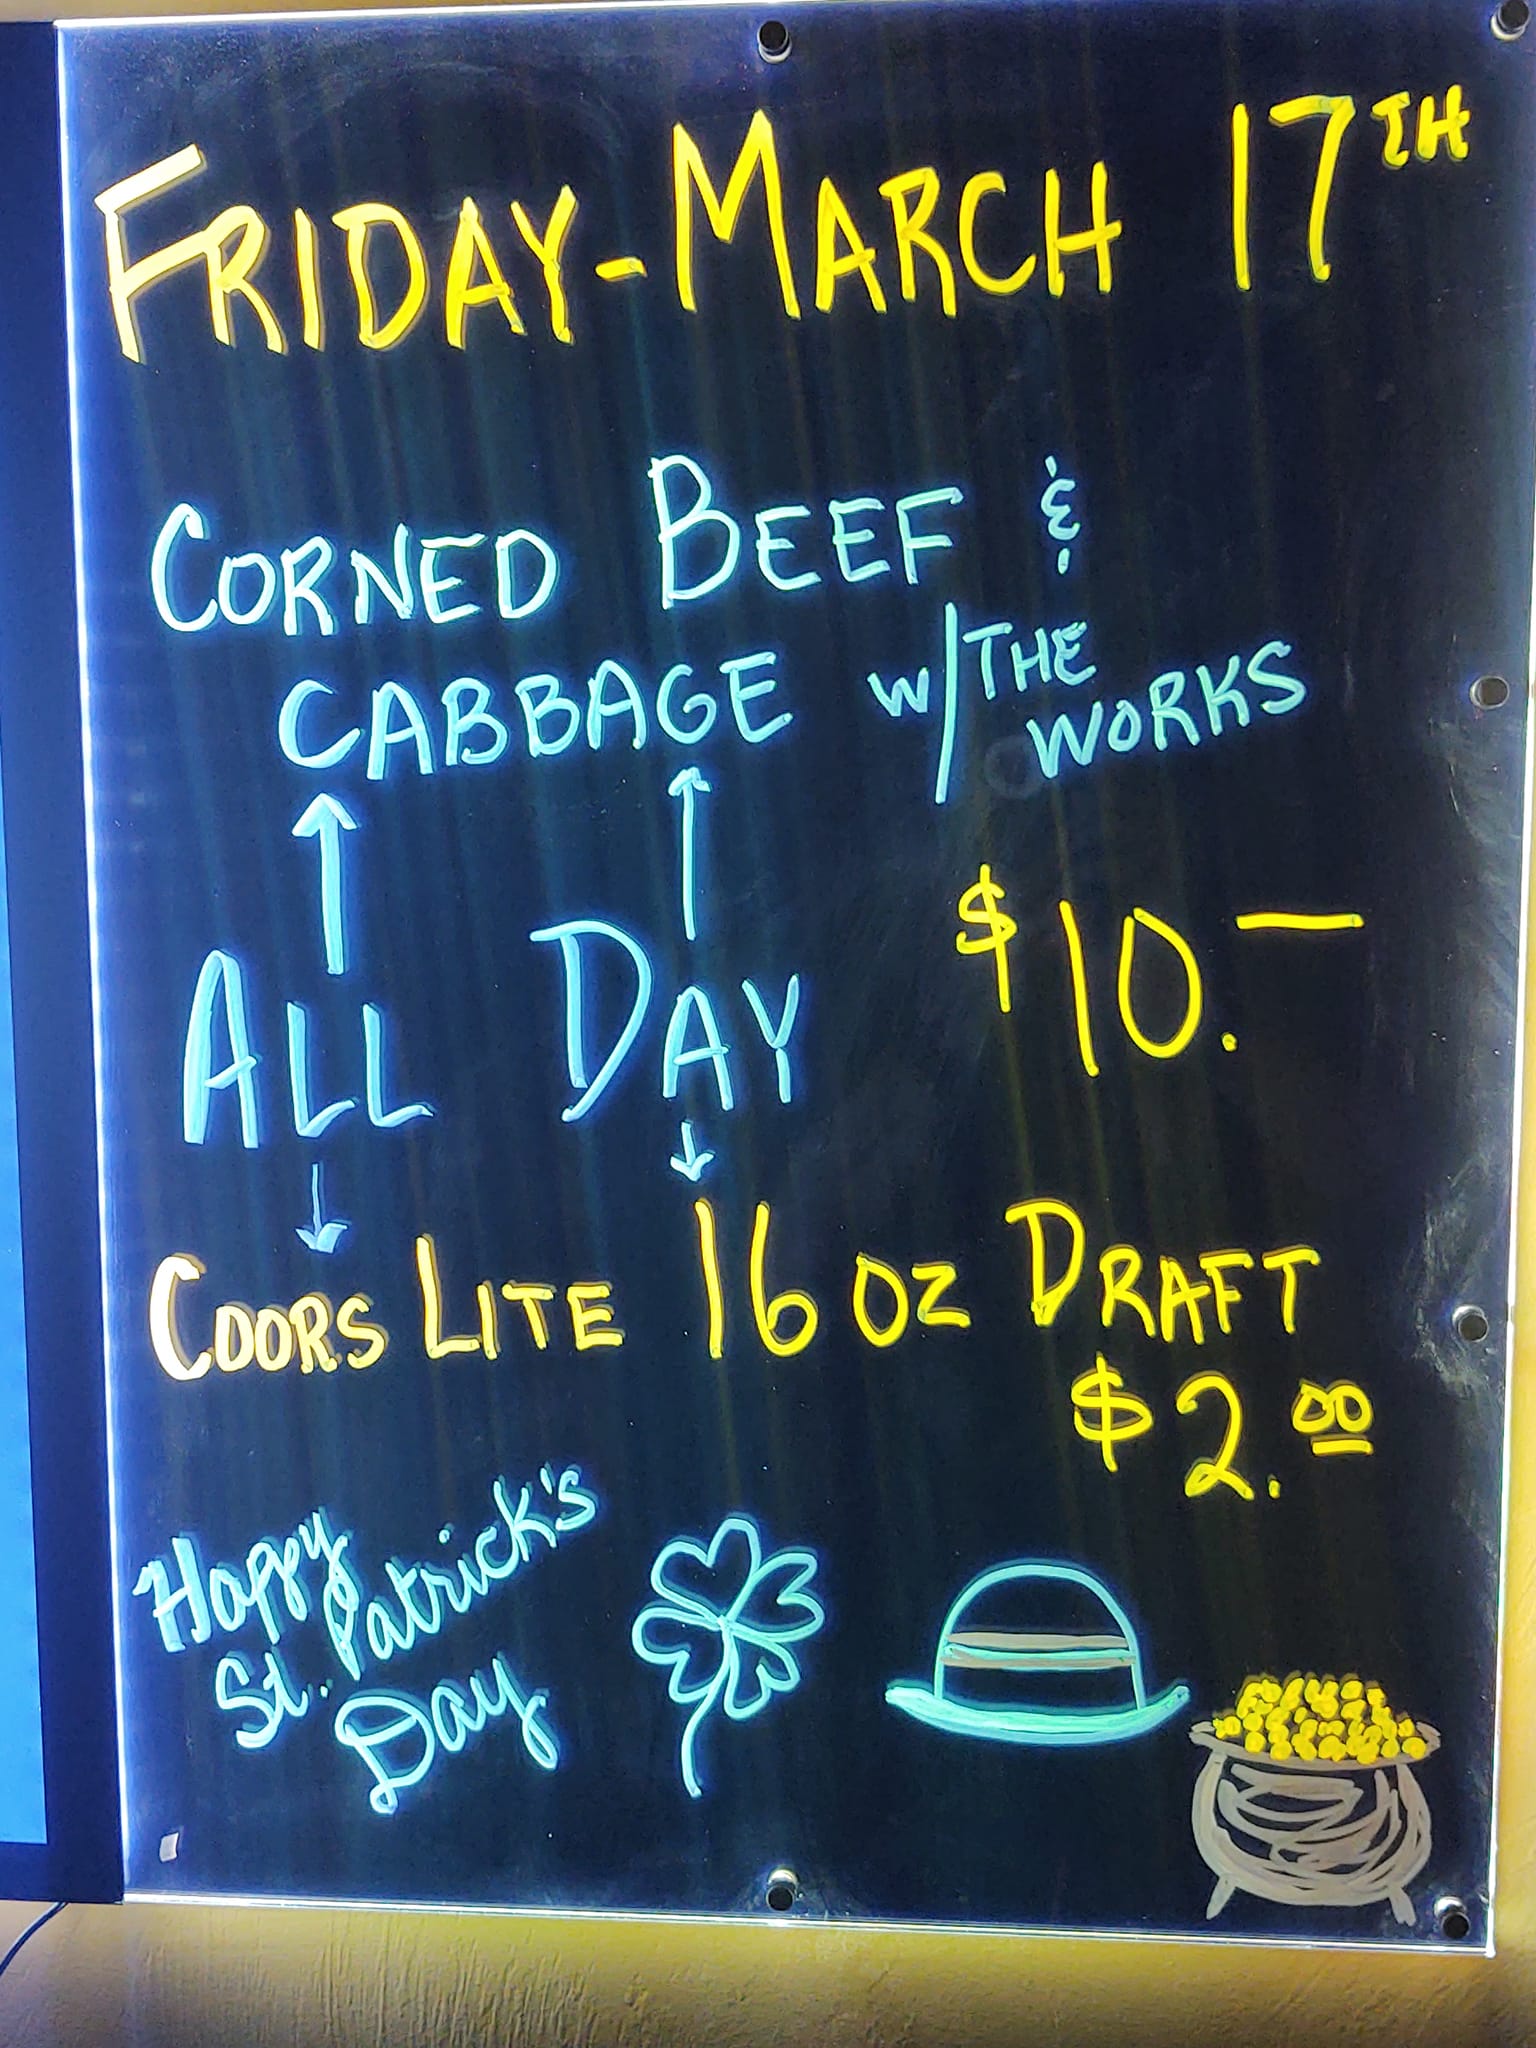 FRIDAY-MARCH 17TH
CORNED BEEF &
CABBAGE W/THE WORKS
ALL DAY $10.—
COORS LITE 16 OZ DRAFT
$2.00
Happy
St. Patrick's
Day